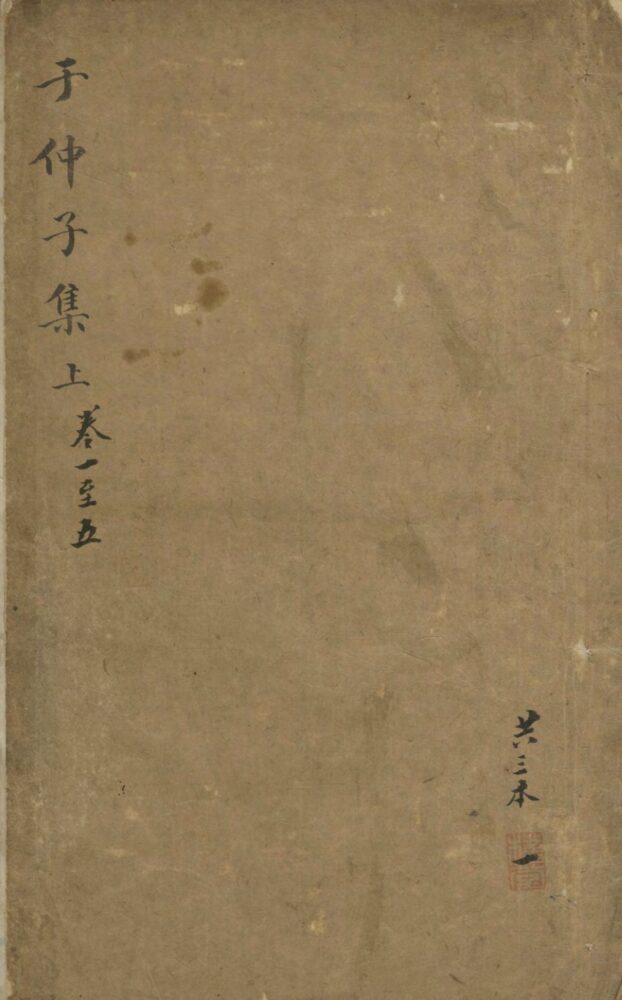 于仲子集上
卷一至五
共三本
一